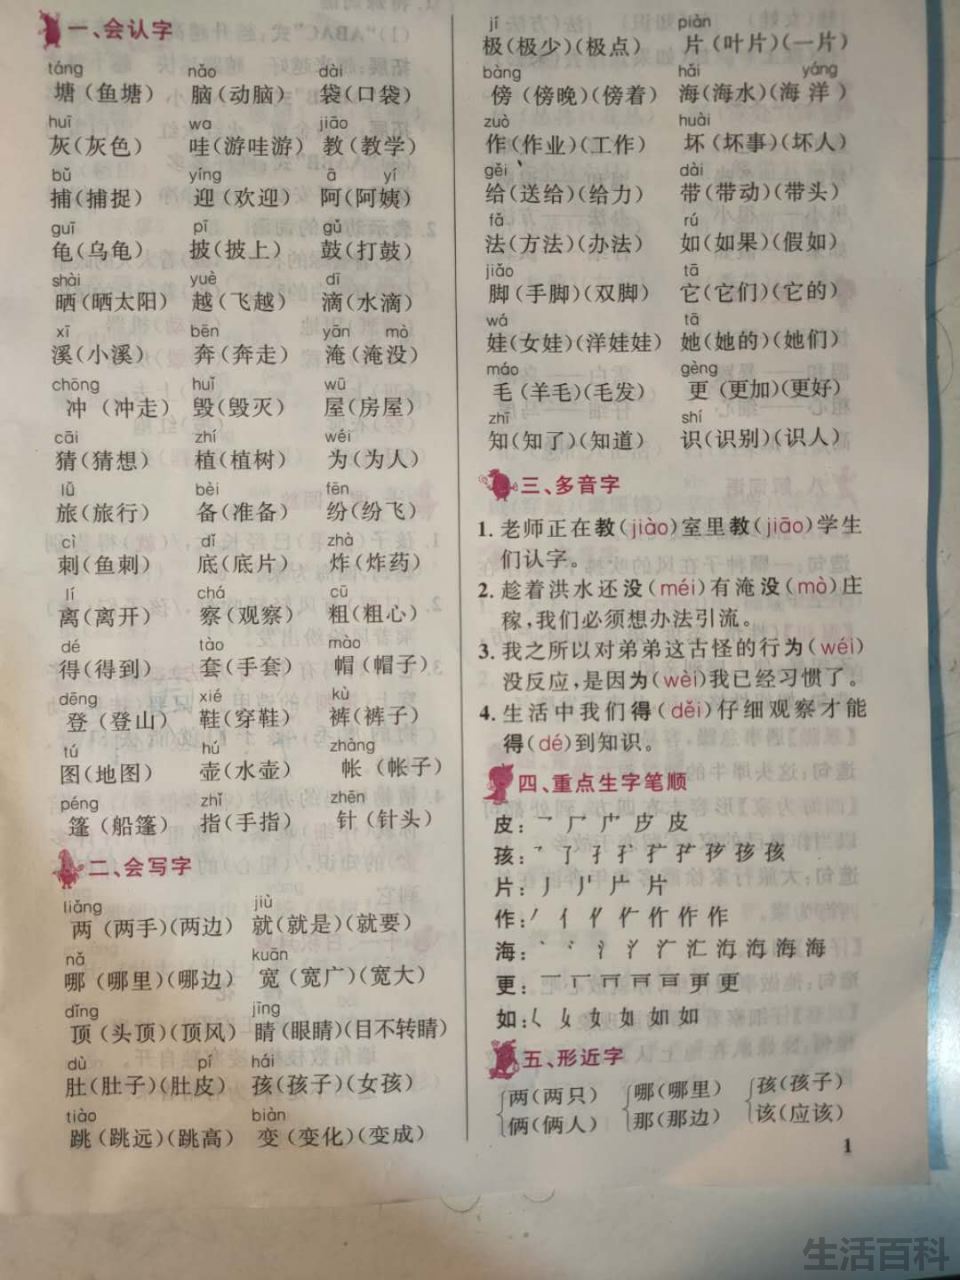 一、会认字
táng nǎo dài
塘(鱼塘) 脑(动脑) 袋(口袋)
huī wa jiāo
灰(灰色) 哇(游哇游) 教(教学)
bǔ yíng ā yí
捕(捕捉) 迎(欢迎) 阿(阿姨)
guī pī gǔ
龟(乌龟) 披(披上) 鼓(打鼓)
shài yuè dī
晒(晒太阳) 越(飞越) 滴(水滴)
xī bēn yān mò
溪(小溪) 奔(奔走) 淹(淹没)
chōng huǐ wū
冲(冲走) 毁(毁灭) 屋(房屋)
cāi zhí wéi
猜(猜想) 植(植树) 为(为人)
lǚ bèi fēn
旅(旅行) 备(准备) 纷(纷飞)
cì dǐ zhà
刺(鱼刺) 底(底片) 炸(炸药)
lí chá cū
离(离开) 察(观察) 粗(粗心)
dé tào mào
得(得到) 套(手套) 帽(帽子)
dēng xié kù
登(登山) 鞋(穿鞋) 裤(裤子)
tú hú zhàng
图(地图) 壶(水壶) 帐(帐子)
péng zhǐ zhēn
篷(船篷) 指(手指) 针(针头)
二、会写字
liǎng jiù
两(两手)(两边) 就(就是)(就要)
nǎ kuān
哪(哪里)(哪边) 宽(宽广)(宽大)
dǐng jīng
顶(头顶)(顶风) 睛(眼睛)(目不转睛)
dù pí hái
肚(肚子)(肚皮) 孩(孩子)(女孩)
tiào biàn
跳(跳远)(跳高) 变(变化)(变成)
jí piàn
极(极少)(极点) 片(叶片)(一片)
bàng hǎi yáng
傍(傍晚)(傍着) 海(海水)(海洋)
zuò huài
作(作业)(工作) 坏(坏事)(坏人)
gěi dài
给(送给)(给力) 带(带动)(带头)
fǎ rú
法(方法)(办法) 如(如果)(假如)
jiǎo tā
脚(手脚)(双脚) 它(它们)(它的)
wá tā
娃(女娃)(洋娃娃) 她(她的)(她们)
máo gèng
毛(羊毛)(毛发) 更(更加)(更好)
zhī shí
知(知了)(知道) 识(识别)(识人)
三、多音字
1. 老师正在教(jiào)室里教(jiāo)学生
们认字。
2. 趁着洪水还没(méi)有淹没(mò)庄
稼,我们必须想办法引流。
3. 我之所以对弟弟这古怪的行为(wéi)
没反应,是因为(wèi)我已经习惯了。
4. 生活中我们得(děi)仔细观察才能
得(dé)到知识。
四、重点生字笔顺
皮:
孩:
片:
作:
海:
更:
如:
五、形近字
两(两只) 哪(哪里) 孩(孩子)
俩(俩人) 那(那边) 该(应该)
1
生活百科